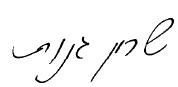 שרון גנות